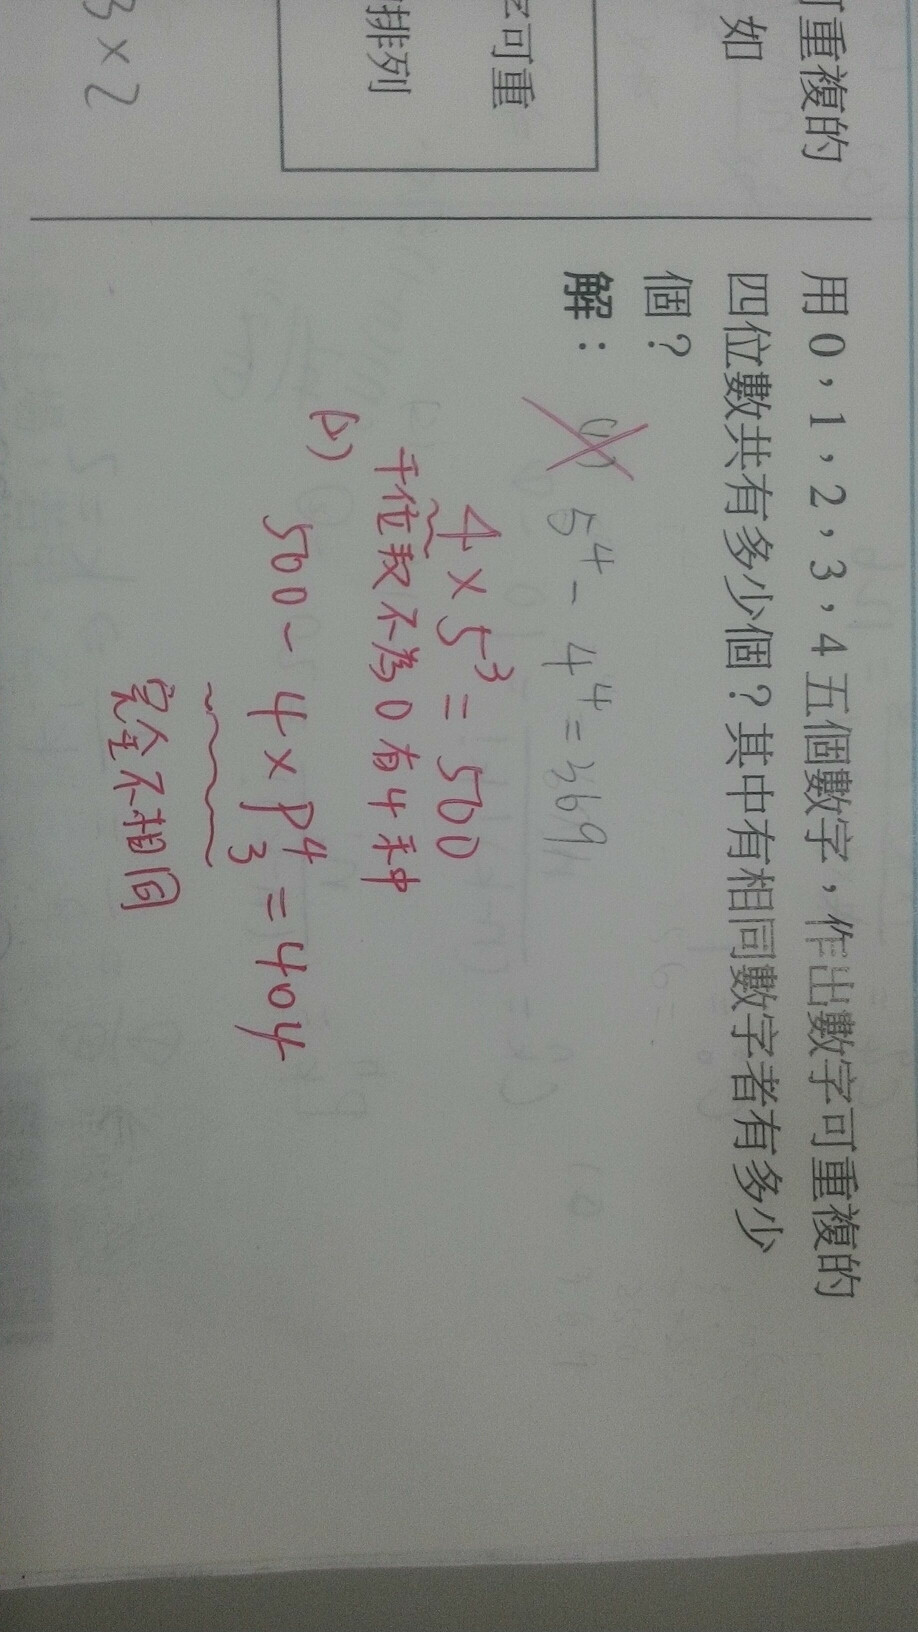 可重複的
如
字可重
排列
3 × 2
用 0，1，2，3，4 五個數字，作出數字可重複的
四位數共有多少個？其中有相同數字者有多少
個？
解：
(1) 5⁴ - 4⁴ = 369
4 × 5³ = 500
千位數不為0有4种
(2)
500 - 4 × P⁴₃ = 404
完全不相同